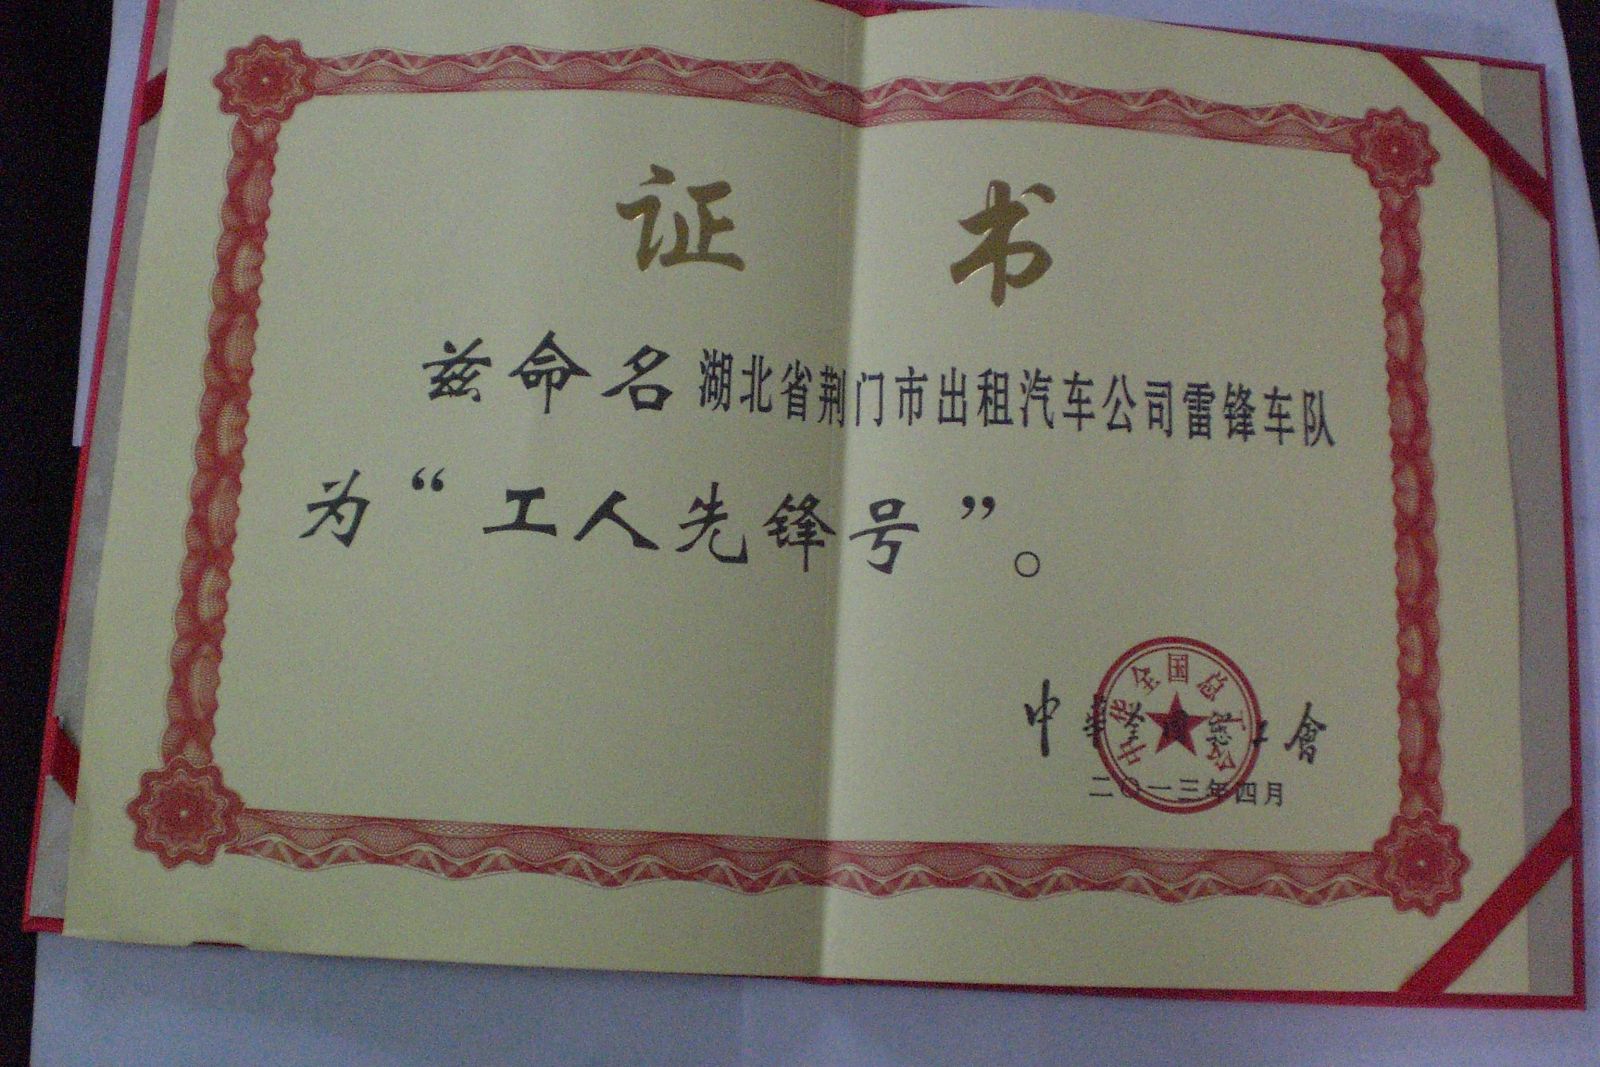 证书
兹命名湖北省荆门市出租汽车公司雷锋车队
为“工人先锋号”。
中華全國總工會
中华全国总工会
二〇一三年四月